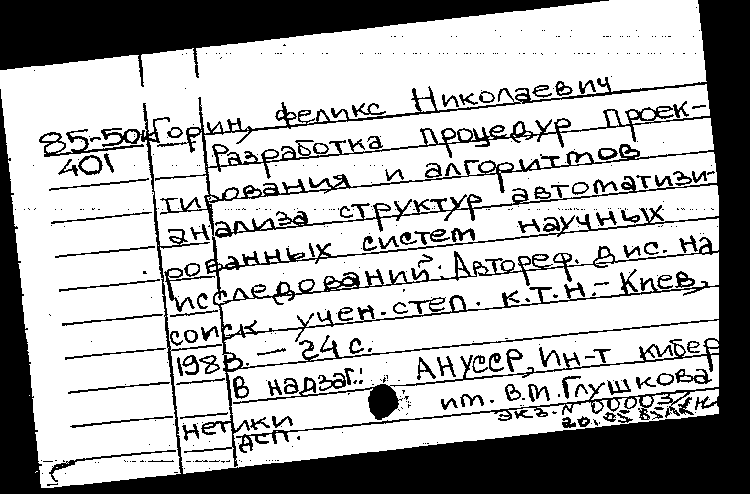 85-50к
401
Горин, Феликс Николаевич
Разработка процедур проек-
тирования и алгоритмов
анализа структур автоматизи-
рованных систем научных
исследований: Автореф. дис. на
соиск. учен. степ. к.т.н. - Киев,
1983. - 24 с.
В надзаг.: АН УССР, Ин-т кибер
нетики им. В.М. Глушкова
ДСП. экз. N